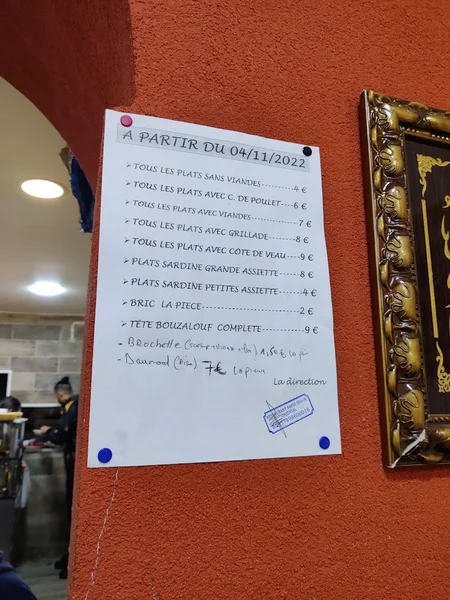 A PARTIR DU 04/11/2022
➢ TOUS LES PLATS SANS VIANDES----------4 €
➢ TOUS LES PLATS AVEC C. DE POULET---6 €
➢ TOUS LES PLATS AVEC VIANDES------------7 €
➢ TOUS LES PLATS AVEC GRILLADE-------8 €
➢ TOUS LES PLATS AVEC CÔTE DE VEAU---9 €
➢ PLATS SARDINE GRANDE ASSIETTE------8 €
➢ PLATS SARDINE PETITES ASSIETTE-----4 €
➢ BRIC LA PIECE--------------------------2 €
➢ TÊTE BOUZALOUF COMPLETE-----------9 €
- Brochette 1,50 €
- Daurad 7€ La pièce
La direction